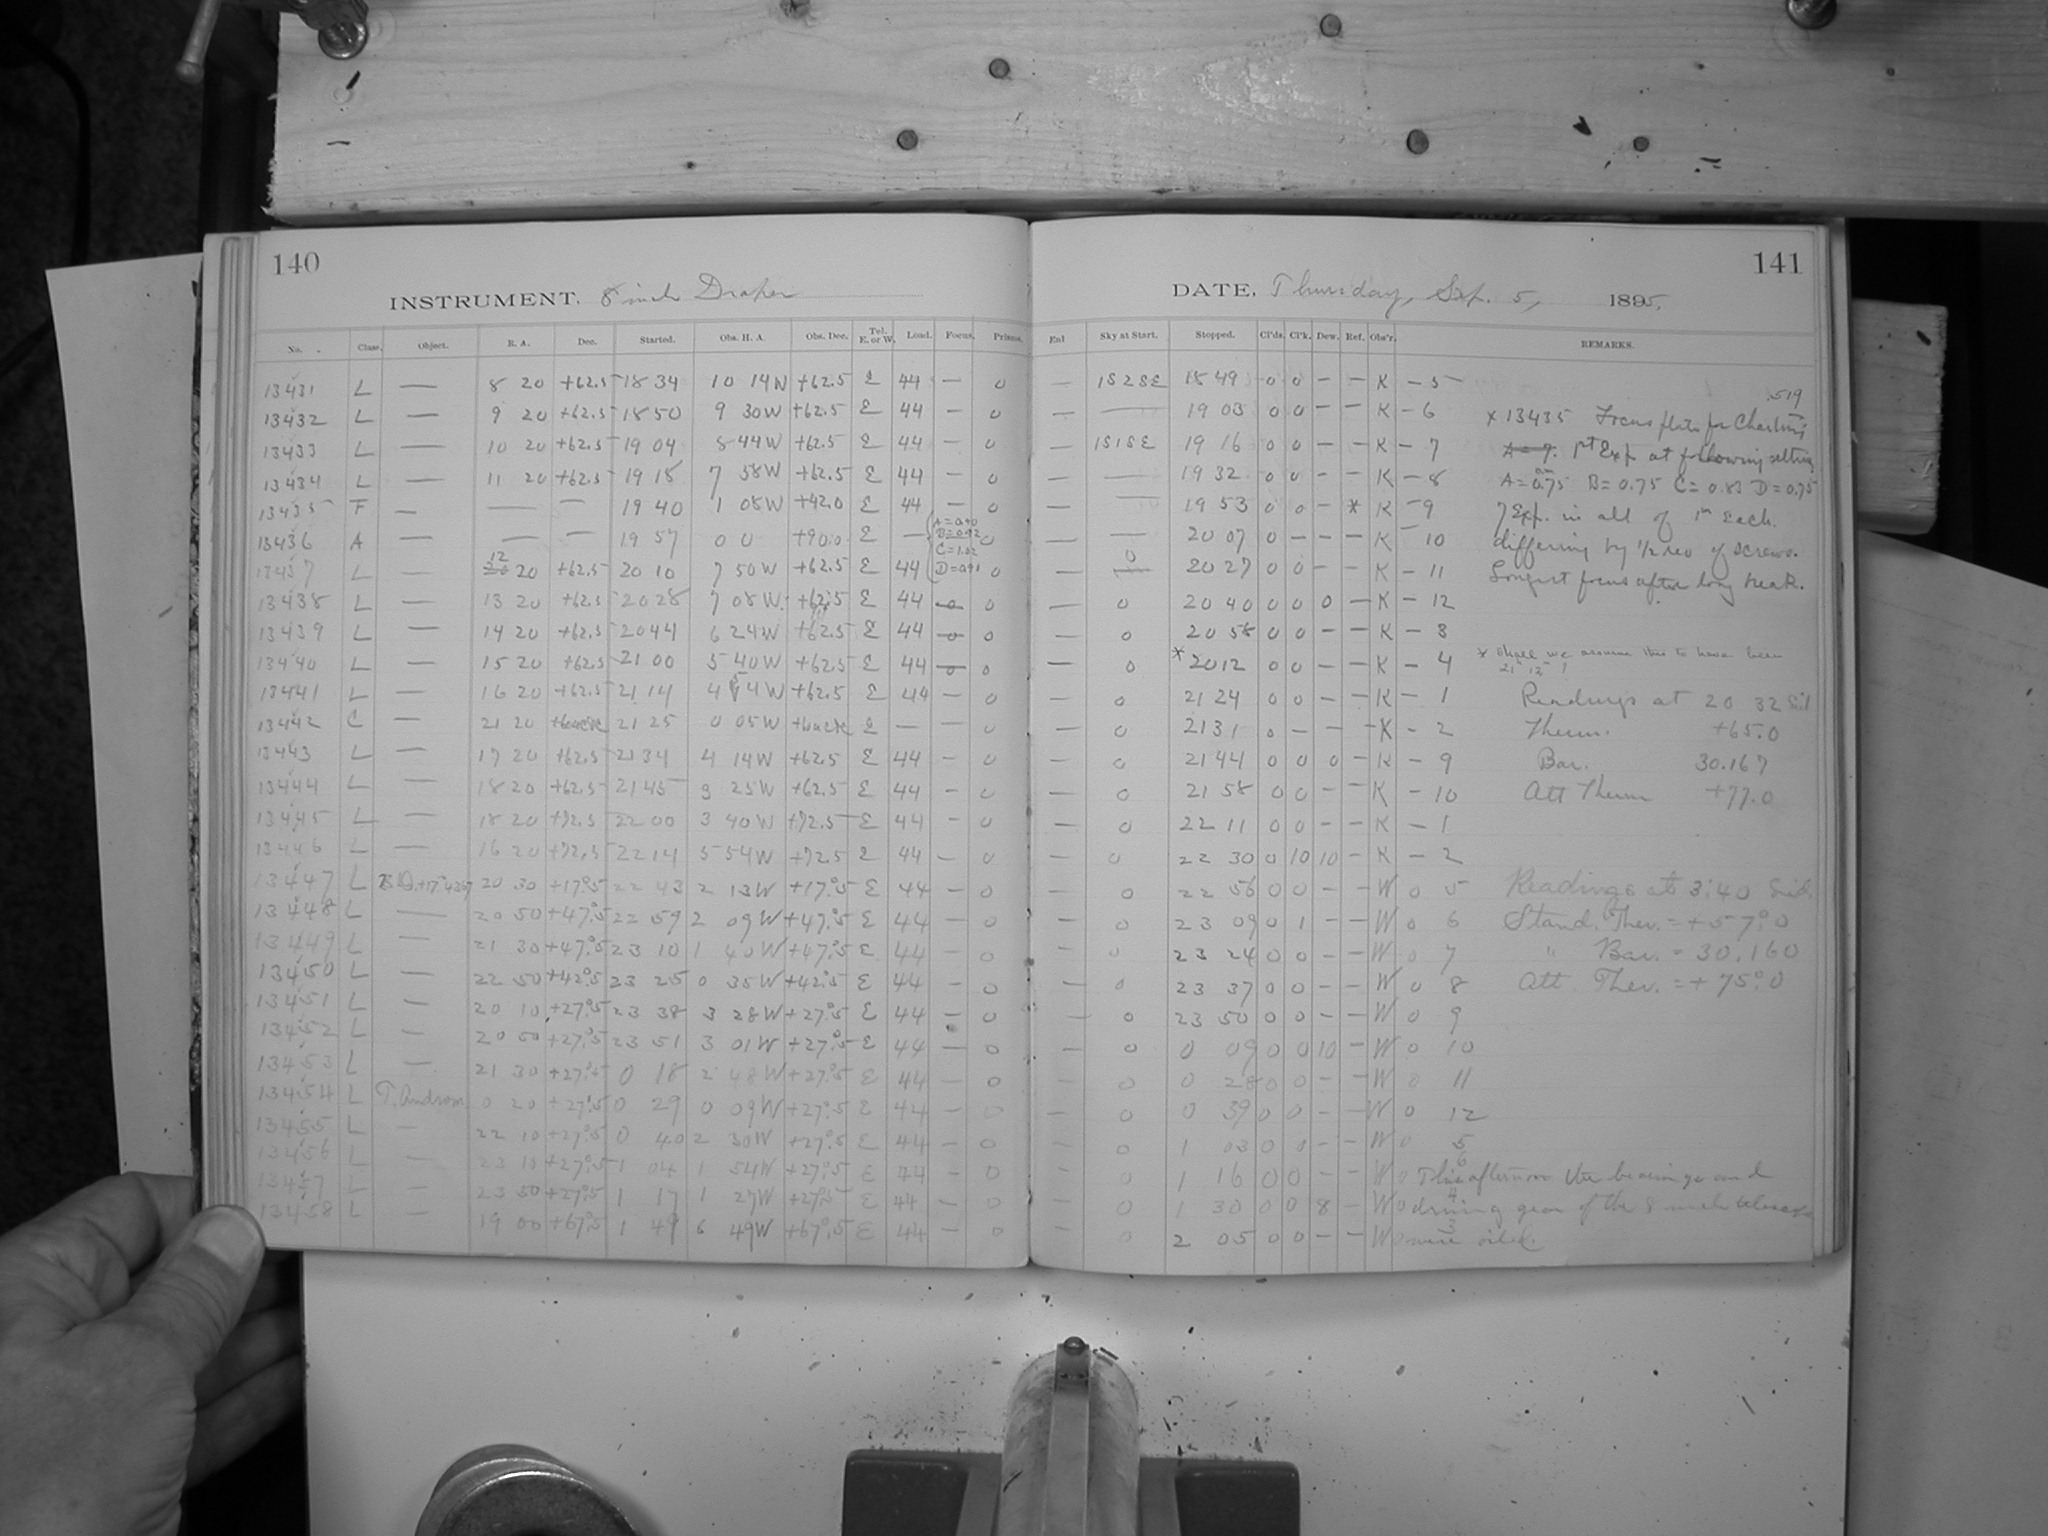 140
INSTRUMENT, 8 inch Draper
No. Class. Object. R. A. Dec. Started. Obs. H. A. Obs. Dec. Tel. E. or W. Load. Focus. Prisms.
13431 L — 8 20 +62.5 18 34 10 14W +62.5 E 44 — 0
13432 L — 9 20 +62.5 18 50 9 30W +62.5 E 44 — 0
13433 L — 10 20 +62.5 19 04 8 44W +62.5 E 44 — 0
13434 L — 11 20 +62.5 19 18 7 58W +62.5 E 44 — 0
13435 F — — — 19 40 1 08W +42.0 E 44 — 0
13436 A — — 19 57 0 0 +90.0 E — A=0.90 B=0.92 C=1.02 D=0.91 0
13437 L — 12 20 +62.5 20 10 7 50W +62.5 E 44 0
13438 L — 13 20 +62.5 20 28 7 08W +62.5 E 44 — 0
13439 L — 14 20 +62.5 20 44 6 24W +62.5 E 44 — 0
13440 L — 15 20 +62.5 21 00 5 40W +62.5 E 44 — 0
13441 L — 16 20 +62.5 21 14 4 54W +62.5 E 44 — 0
13442 C — 21 20 +back 21 25 0 05W +back E — — 0
13443 L — 17 20 +62.5 21 34 4 14W +62.5 E 44 — 0
13444 L — 18 20 +62.5 21 45 3 25W +62.5 E 44 — 0
13445 L — 18 20 +72.5 22 00 3 40W +72.5 E 44 — 0
13446 L — 16 20 +72.5 22 14 5 54W +72.5 E 44 — 0
13447 L B.D.+17°4367 20 30 +17°.5 22 43 2 13W +17°.5 E 44 — 0
13448 L — 20 50 +47°.5 22 59 2 09W +47°.5 E 44 — 0
13449 L — 21 30 +47°.5 23 10 1 40W +47°.5 E 44 — 0
13450 L — 22 50 +42°.5 23 25 0 35W +42°.5 E 44 — 0
13451 L — 20 10 +27°.5 23 38 3 28W +27°.5 E 44 — 0
13452 L — 20 50 +27°.5 23 51 3 01W +27°.5 E 44 — 0
13453 L — 21 30 +27°.5 0 18 2 48W +27°.5 E 44 — 0
13454 L T. Androm. 0 20 +27°.5 0 29 0 09W +27°.5 E 44 — 0
13455 L — 22 10 +27°.5 0 40 2 30W +27°.5 E 44 — 0
13456 L — 23 10 +27°.5 1 04 1 54W +27°.5 E 44 — 0
13457 L — 23 50 +27°.5 1 17 1 27W +27°.5 E 44 — 0
13458 L — 19 00 +67°.5 1 49 6 49W +67°.5 E 44 — 0
141
DATE, Thursday, Sep. 5, 1895.
Enl Sky at Start. Stopped. Cl'ds. Cl'k. Dew. Ref. Obs'r. REMARKS.
— 1S2SE 18 49 0 0 — — K — 5
— — 19 03 0 0 — — K — 6
— 1S1SE 19 16 0 0 — — K — 7
— — 19 32 0 0 — — K — 8
— 19 53 0 0 — * K — 9
— — 20 07 0 — — — K — 10
— 0 20 27 0 0 — — K — 11
— 0 20 40 0 0 0 — K — 12
— 0 20 58 0 0 — — K — 3
— 0 *2012 0 0 — — K — 4
— 0 21 24 0 0 — — K — 1
— 0 21 31 0 — — — K — 2
— 0 21 44 0 0 0 — K — 9
— 0 21 58 0 0 — — K — 10
— 0 22 11 0 0 — — K — 1
— 0 22 30 0 10 10 — K — 2
— 0 22 56 0 0 — — W 0 5
— 0 23 09 0 1 — — W 0 6
— 0 23 24 0 0 — — W 0 7
— 0 23 37 0 0 — — W 0 8
— 0 23 50 0 0 — — W 0 9
— 0 0 09 0 0 10 — W 0 10
— 0 0 28 0 0 — — W 0 11
— 0 0 39 0 0 — — W 0 12
— 0 1 03 0 0 — — W 0 5
— 0 1 16 0 0 — — W 0 6
— 0 1 30 0 0 8 — W 0 4
0 2 05 0 0 — — W 0 3
519
x 13435 Focus plate for
A = 7. 1st Exp at following setting
A=0.75 B=0.75 C=0.83 D=0.75
7 Exp. in all of 1m each.
differing by 1/2 rev of screws.
Longest focus after long break.
* Shall we assume this to have been
21h 12m ?
Readings at 20 32 Sid
Therm. +65.0
Bar. 30.167
Att Therm +77.0
Readings at 3:40 Sid.
Stand. Ther. = +57°.0
" Bar. = 30.160
Att. Ther. = +75°.0
This afternoon the bearings and
driving gear of the 8 inch telescope
were oiled.